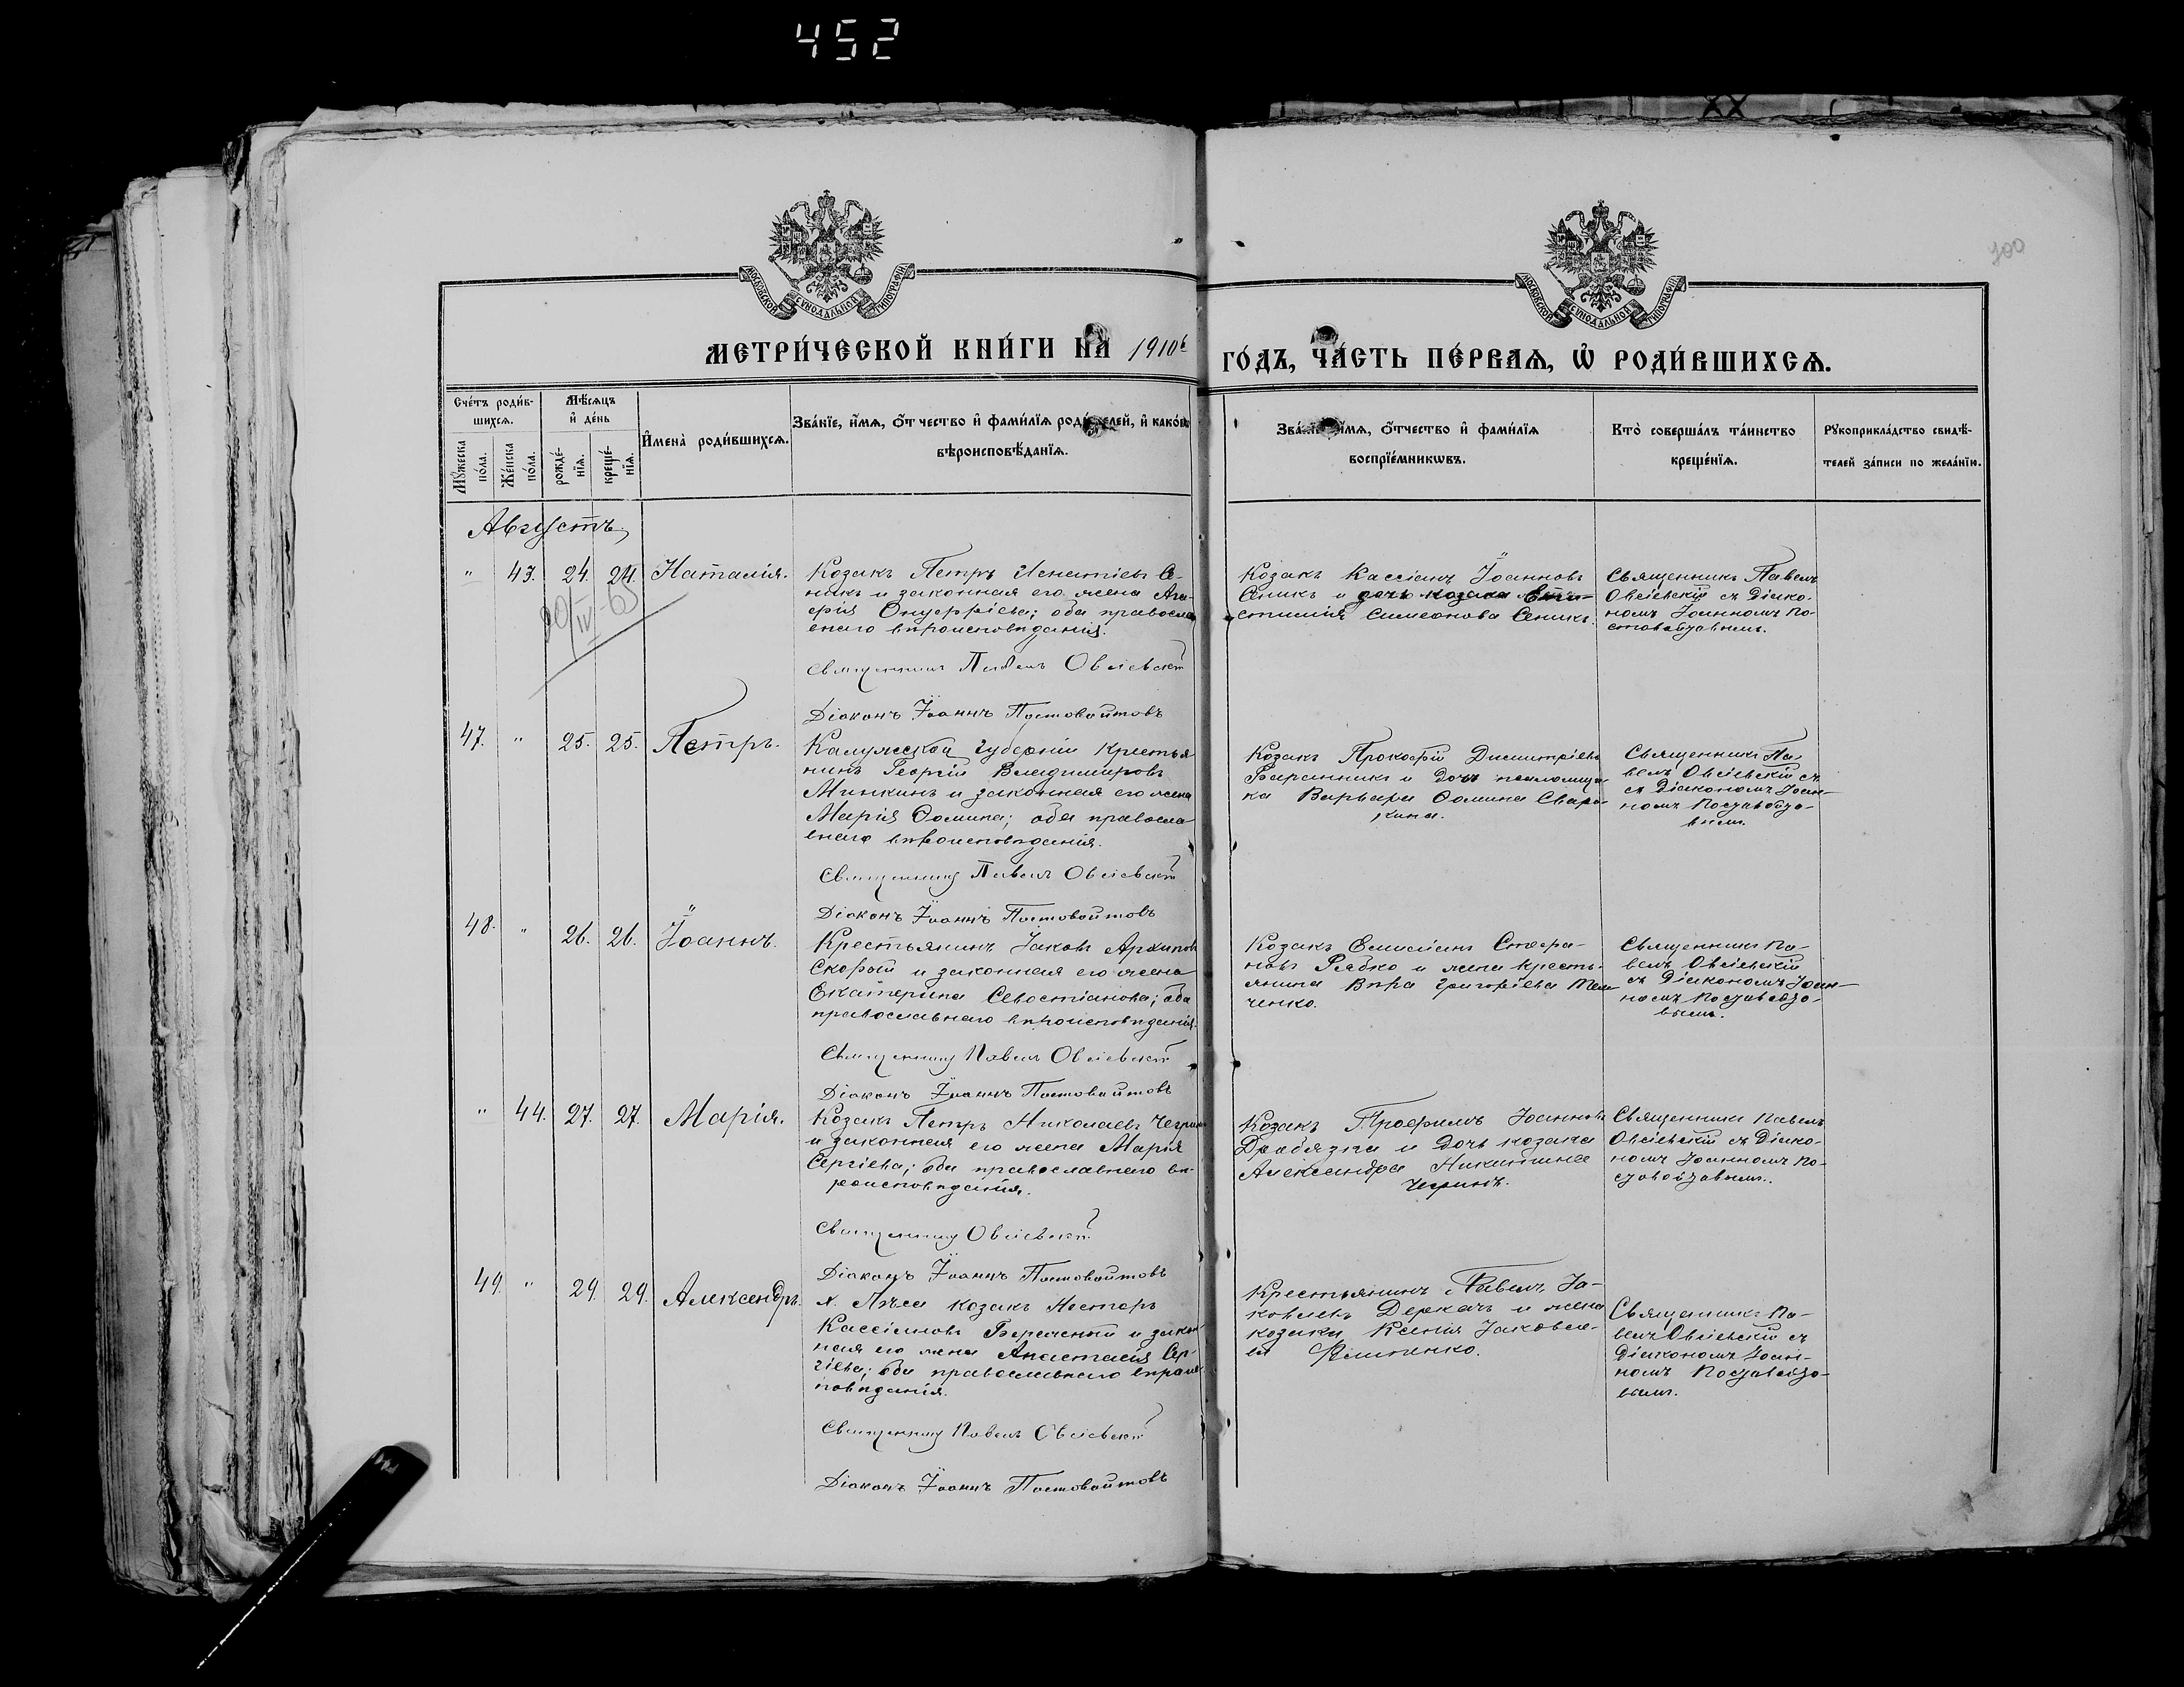 452
100
МОСКОВСКОЙ СѴНОДАЛЬНОЙ ТИПОГРАФІИ
МОСКОВСКОЙ СѴНОДАЛЬНОЙ ТИПОГРАФІИ
МЕТРИ́ЧЕСКОЙ КНИ́ГИ НА 1910й
ГО́ДЪ, ЧА́СТЬ ПЕ́РВАѦ, Ѿ РОДИ́ВШИХСѦ.
Сче́тъ роди́в-
шихсѧ.
Мꙋ́жеска по́ла.
Же́нска по́ла.
Мѣ́сѧцъ
и҆ де́нь
рожде́-
нїѧ.
креще́-
нїѧ.
И҆мена̀ роди́вшихсѧ.
Зва́нїе, и҆́мѧ, ѻ҆́тчество и҆ фами́лїѧ роди́телей, и҆ како́гѡ
вѣроисповѣ́данїѧ.
Зва́нїе, и҆́мѧ, ѻ҆́тчество и҆ фами́лїѧ
воспрїе́мникѡвъ.
Кто̀ соверша́лъ та́инство
креще́нїѧ.
Рꙋкоприкла́дство свидѣ́-
телей за́писи по жела́нїю.
Августъ
" 43. 24. 24. Наталія.
20/IV-65
Козакъ Петръ Игнатіевъ Се-
никъ и законная его жена Ага-
фія Онуфріева; оба правосла
внаго вѣроисповѣданія.
Священникъ Павелъ Овсіевскій
Діаконъ Іоаннъ Постовойтовъ
Козакъ Кассіанъ Іоанновъ
Сеникъ и дочь козака
Симеонова Сеникъ.
Священникъ Павелъ
Овсіевскій съ Діако-
номъ Іоанномъ По-
стовойтовымъ.
47. " 25. 25. Петръ.
Калужской губерніи крестья
нинъ Георгій Владиміровъ
Минкинъ и законная его жена
Марія Ѳомина; оба правосла
внаго вѣроисповѣданія.
Священникъ Павелъ Овсіевскій
Діаконъ Іоаннъ Постовойтовъ
Козакъ Прокофій Димитріевъ
Баранникъ и дочь
ка Варвара Ѳомина
Священникъ Па-
велъ Овсіевскій съ
съ Діакономъ Іоан-
номъ Постовойто-
вымъ.
48. " 26. 26. Іоаннъ.
Крестьянинъ Іаковъ Архиповъ
Скорый и законная его жена
Екатерина Севостіанова; оба
православнаго вѣроисповѣданія.
Священникъ Павелъ Овсіевскій
Діаконъ Іоаннъ Постовойтовъ
Козакъ Емиліанъ Стефа-
новъ Рябко и жена кресть-
янина Вѣра Григоріева
ченко.
Священникъ Па-
велъ Овсіевскій
съ Діакономъ Іоан-
номъ Постовойто-
вымъ.
" 44. 27. 27. Марія.
Козакъ Петръ Николаевъ
и законная его жена Марія
Сергіева; оба православнаго вѣ-
роисповѣданія.
Священникъ Овсіевскій
Діаконъ Іоаннъ Постовойтовъ
Козакъ Трофимъ Іоанновъ
Драбязга и дочь козака
Александра Никитина
Священникъ Павелъ
Овсіевскій съ Діако-
номъ Іоанномъ По-
стовойтовымъ.
49. " 29. 29. Александръ.
козакъ Несторъ
Кассіановъ Бережный и закон-
ная его жена Анастасія Сер-
гіева; оба православнаго вѣроис-
повѣданія.
Священникъ Павелъ Овсіевскій
Діаконъ Іоаннъ Постовойтовъ
Крестьянинъ Павелъ Іа-
ковлевъ Деркачъ и жена
козака Ксенія Іаковле-
ва Филипенко.
Священникъ Па-
велъ Овсіевскій съ
Діакономъ Іоан-
номъ Постовойто-
вымъ.